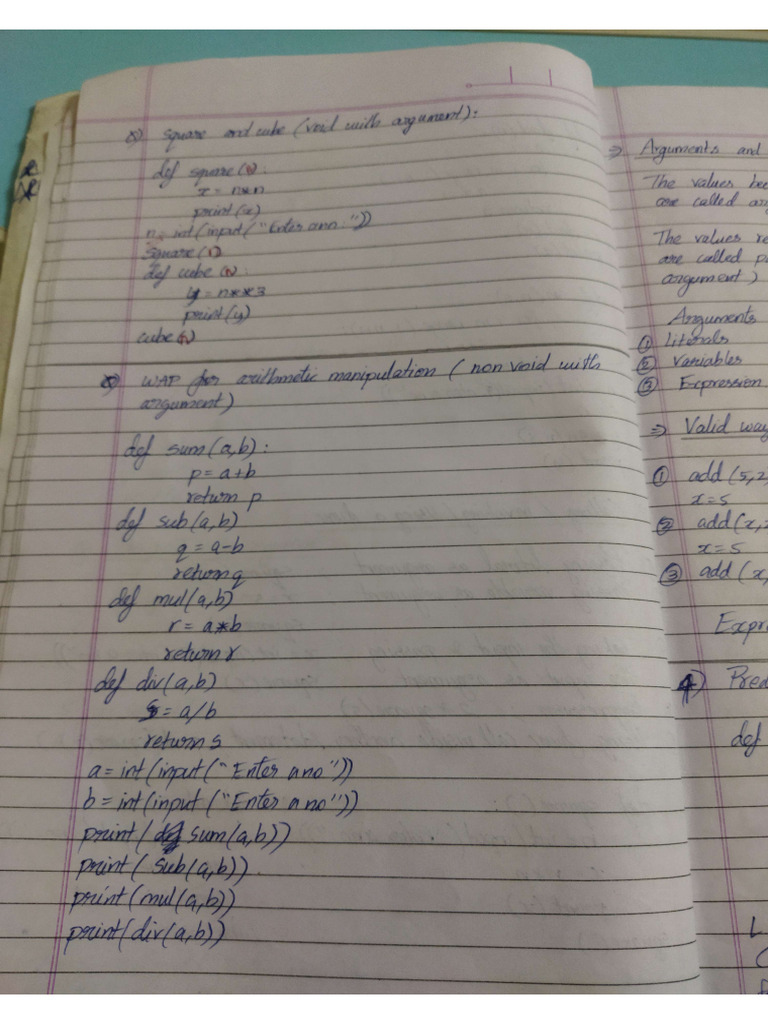 Q) Square and cube (void with argument):
def square(n):
x = n*n
print(x)
n = int(input("Enter a no: "))
square(n)
def cube(n):
y = n**3
print(y)
cube(n)
Q) WAP for arithmetic manipulation ( non void with
argument)
def sum(a,b):
p = a+b
return p
def sub(a,b)
q = a-b
return q
def mul(a,b)
r = a*b
return r
def div(a,b)
s = a/b
return s
a = int(input("Enter a no"))
b = int(input("Enter a no"))
print( sum(a,b))
print( sub(a,b))
print(mul(a,b))
print(div(a,b))
⇒ Arguments and
The values
are called
The values
are called
argument)
Arguments
① literals
② Variables
③ Expression
⇒ Valid
① add (5,2
x=5
② add(x,
x=5
③ add (x,
4)
def